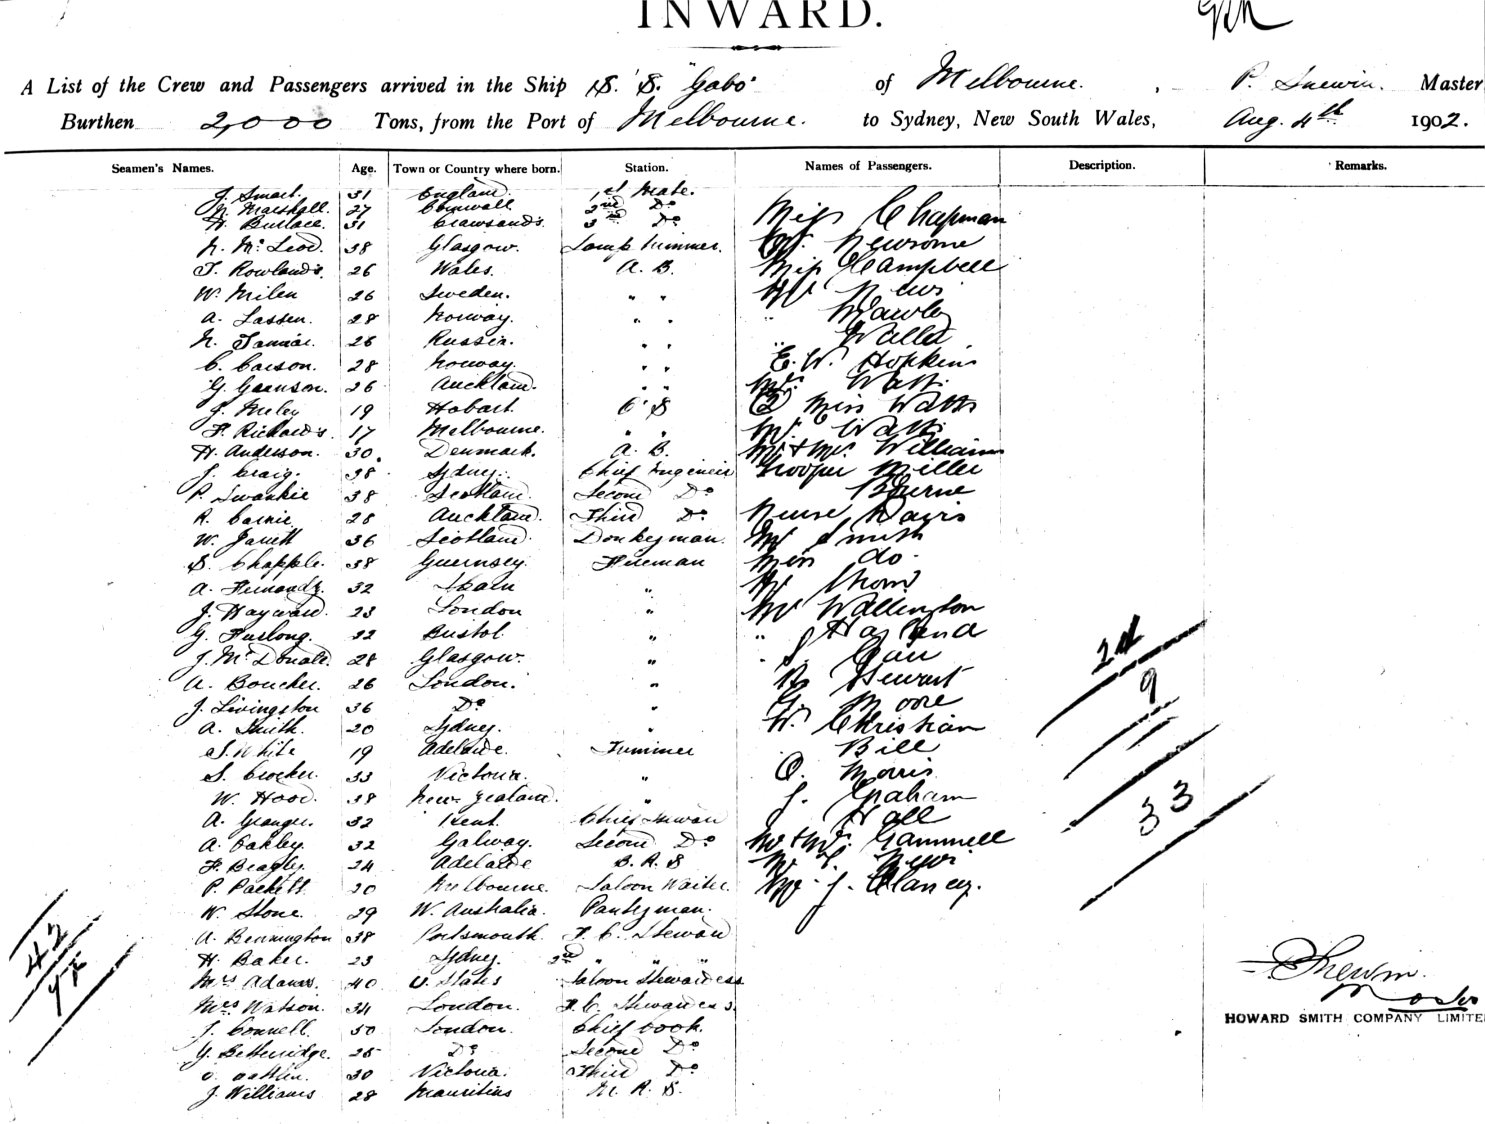 INWARD.
A List of the Crew and Passengers arrived in the Ship S. S. "Gabo" of Melbourne. , P. Snewin. Master
Burthen 2,000 Tons, from the Port of Melbourne. to Sydney, New South Wales, Aug. 4th 1902.
Seamen's Names. Age. Town or Country where born. Station. Names of Passengers. Description. Remarks.
J. Smart. 31 England. 1st Mate.
Marshall. 27 Cornwall 2nd Do
H. Burlace. 31 3rd Do Miss Chapman
N. McLeod. 38 Glasgow. Lamp Trimmer. Newsome
T. Rowlands. 26 Wales. A. B. Miss Campbell
W. Milen 26 Sweden. " " Mr
A. Lassen. 28 Norway. " " " Hawley
N. 26 Russia. " " "
C. Carson. 28 Norway. " " E. W. Hopkins
G. 26 Auckland. " " Watts
J. 19 Hobart. O S 2 Miss Watts
F. Richards. 17 Melbourne. " " Mr Watts
H. Anderson. 30. Denmark. A. B. Mr & Mrs Williams
J. Craig. 38 Sydney. Chief Engineer Trooper Miller
P. Swankie 38 Scotland. Second Do Byrne
R. 28 Auckland. Third Do Nurse Davis
W. Jarrett 36 Scotland. Donkeyman. Mr Smith
S. Chapple. 38 Guernsey. Fireman Miss do.
A. 32 Spain "
J. Hayward. 23 London " Mr Wallington
G. Furlong. 22 Bristol " "
J. McDonald. 28 Glasgow. " 24
A. Boucher. 26 London. " Stewart 9
J. Livingston 36 Do " G. Moore
A. Smith. 20 Sydney. " W. Christian
S. White 19 Adelaide. Trimmer Bill
S. Crocker. 33 Victoria. " O. Morris
W. Hood. 38 New Zealand. " J. Graham 33
A. Granger. 32 Kent. Chief Steward Hall
A. Oakley. 32 Galway. Second Do Mr & Mrs Gammell
F. Beagley. 24 Adelaide B. R. S
P. Packett. 20 Melbourne. Saloon Waiter. Mr. J. Clancy.
W. Stone. 29 W. Australia. Pantryman.
A. Bennington 38 Portsmouth. F. C. Steward
H. Baker. 23 Sydney. 2nd " "
Mrs Adams. 40 U. States Saloon Stewardess
Mrs Watson. 34 London. F. C. Stewardess.
42
J. Connell. 50 London. Chief Cook.
G. Betteridge. 25 Do Second Do
30 Victoria. Third Do
J. Williams 28 Mauritius M. R. S.
P Snewin.
Master
HOWARD SMITH COMPANY LIMITE